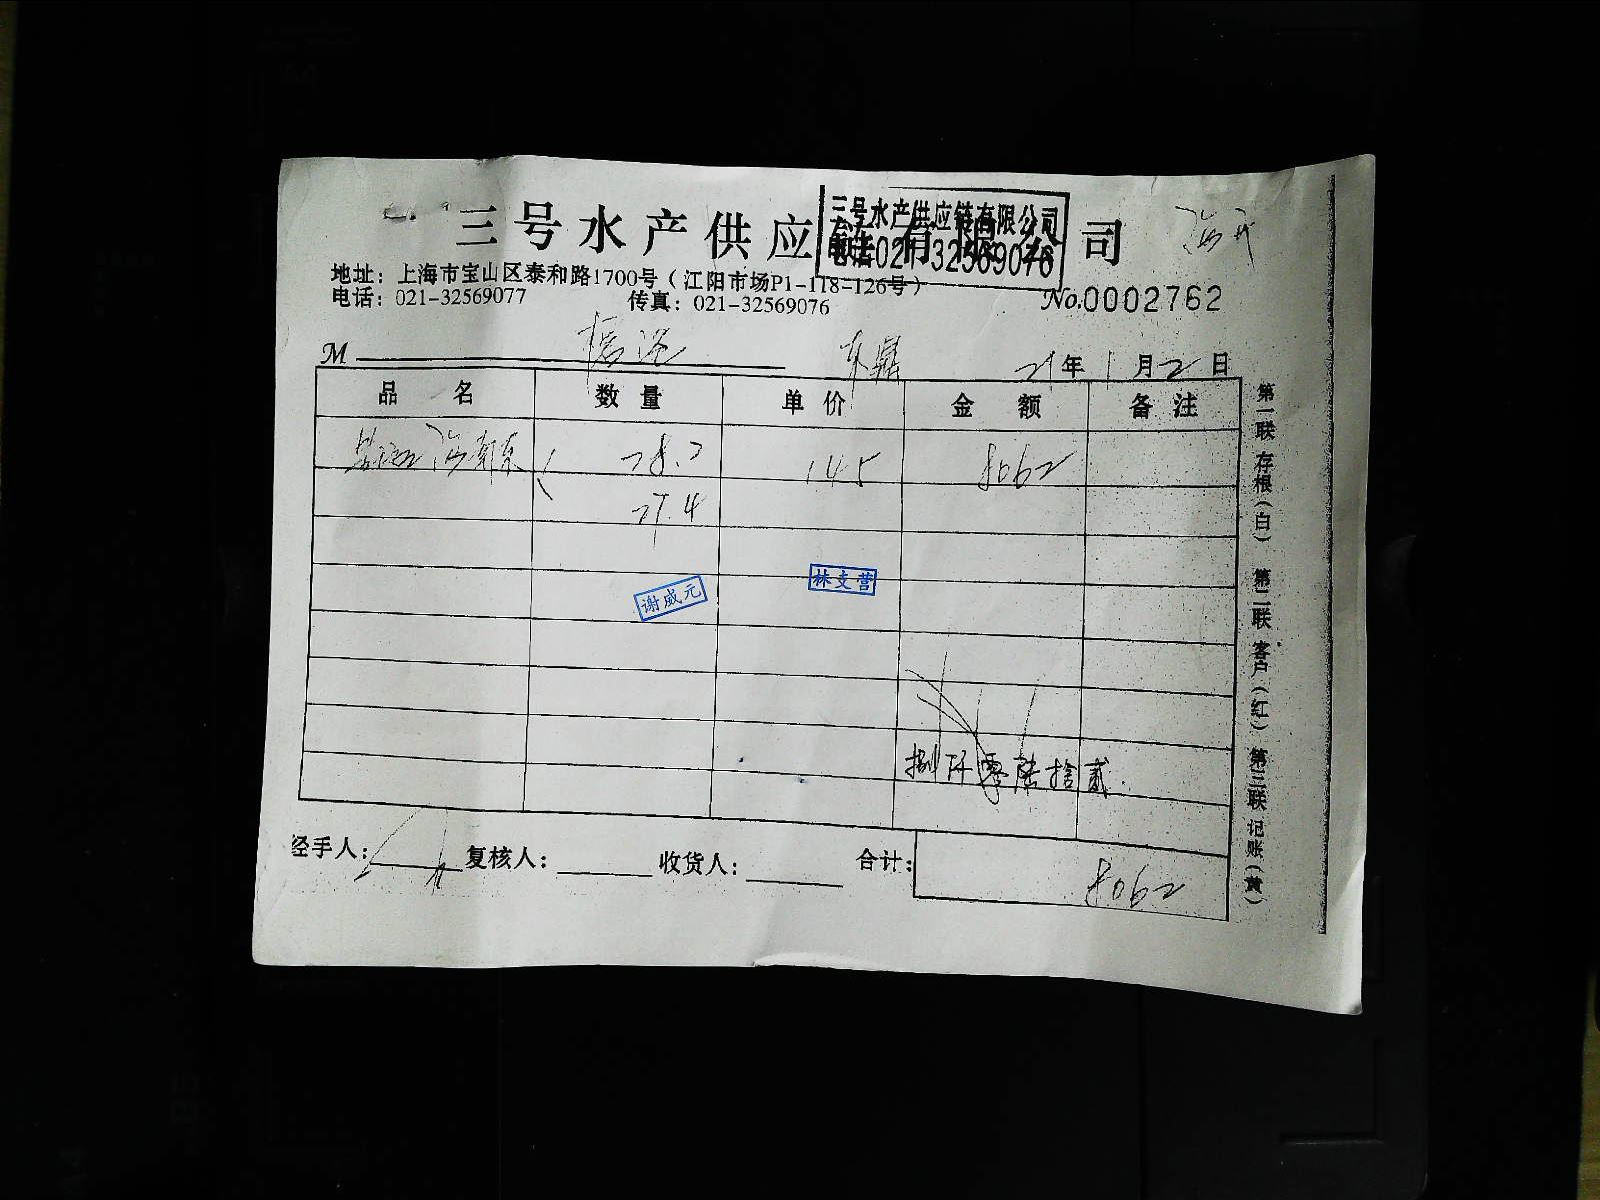 三号水产供应链有限公司
三号水产供应链有限公司
电话021-32569076
地址：上海市宝山区泰和路1700号（江阳市场P1-118-126号）
电话：021-32569077 传真：021-32569076
No.0002762
M 东鼎 21年1月2日
品名 数量 单价 金额 备注
28.2 145 8062
27.4
谢威元 林支营
捌仟零陆拾贰
经手人： 复核人： 收货人： 合计：
8062
第一联 存根（白） 第二联 客户（红） 第三联 记账（黄）